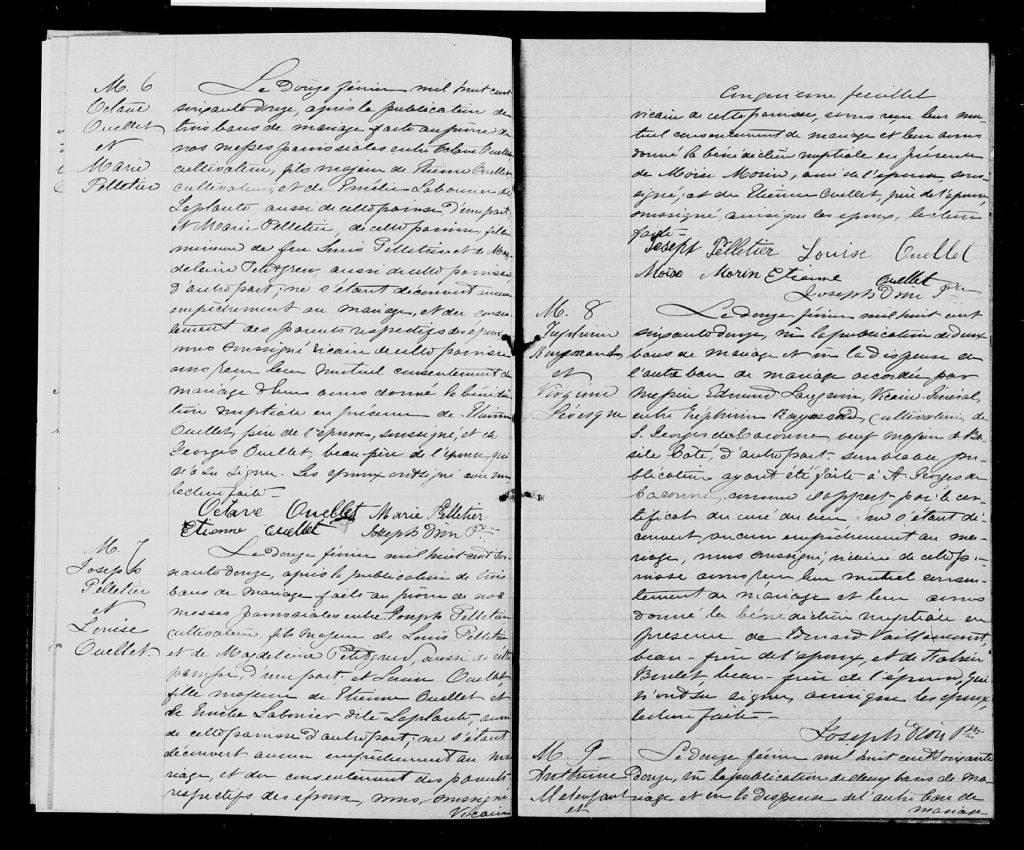 M. 6
Octave
Ouellet
et
Marie
Pelletier
Le Douze février mil huit cent
soixante douze, après la publication de
trois bans de mariage faite au prône de
nos messes paroissiales entre Octave Ouellet
cultivateur, fils majeur de Etienne Ouellet
cultivateur, et de Emélie Labonne dit
Laplante, aussi de cette paroisse d'une part;
et Marie Pelletier, de cette paroisse, fille
mineure de feu Louis Pelletier et de Mag-
deleine Petitgrew, aussi de cette paroisse
d'autre part; ne s'étant découvert aucun
empêchement au mariage, et du consen-
tement des parents respectifs des époux
nous soussigné vicaire de cette paroisse
avons reçu leur mutuel consentement de
mariage et leur avons donné la bénédic-
tion nuptiale en présence de Etienne
Ouellet, père de l'époux, soussigné, et de
Georges Ouellet, beau-père de l'épouse, qui
n'a su signer. Les époux ont signé avec nous
lecture faite -
Octave Ouellet Marie Pelletier
Etienne Ouellet Joseph Dion Ptre
M. 7
Joseph
Pelletier
et
Louise
Ouellet.
Le Douze février mil huit cent soi-
xante douze, après la publication de trois
bans de mariage faite au prône de nos
messes paroissiales entre Joseph Pelletier
cultivateur, fils majeur de Louis Pelletier
et de Magdeleine Petitgrew, aussi de cette
paroisse, d'une part; et Louise Ouellet,
fille majeure de Etienne Ouellet et
de Emélie Labonier dite Laplante, aussi
de cette paroisse d'autre part; ne s'étant
découvert aucun empêchement au ma-
riage, et du consentement des parents
respectifs des époux, nous, soussigné
Vicaire
Cinquième feuillet
vicaire de cette paroisse, avons reçu leur mu-
tuel consentement de mariage et leur avons
donné la bénédiction nuptiale en présence
de Moïse Morin, ami de l'époux sous-
signé; et de Etienne Ouellet, père de l'épouse,
soussigné, ainsi que les époux, lecture
faite -
Joseph Pelletier Louise Ouellet
Moise Morin Etienne Ouellet
Joseph Dion Ptre
M. 8
Raymond
et
Virginie
Lévesque
Le Douze février mil huit cent
soixante douze, vu la publication de deux
bans de mariage et vu la dispense de
l'autre ban de mariage accordée par
Messire Edmund Langevin, Vicaire Général,
entre Raymond, cultivateur de
S. Georges de Cacouna, veuf majeur de Ba-
sile Côté, d'autre part. semblable pu-
blication ayant été faite à St Georges de
Cacouna, comme il appert par le cer-
tificat du curé du lieu; ne s'étant dé-
couvert aucun empêchement au ma-
riage, nous soussigné, vicaire de cette pa-
roisse avons reçu leur mutuel consen-
tement de mariage et leur avons
donné la bénédiction nuptiale en
présence de Vaillancourt,
beau-frère de l'époux, et de
beau-frère de l'épouse, qui
n'ont su signer, ainsi que les époux,
lecture faite -
Joseph Dion Ptre
M. 9
et
Le douze février mil huit cent soixante
douze, vu la publication de deux bans de ma-
riage et vu la dispense de l'autre ban de
mariage